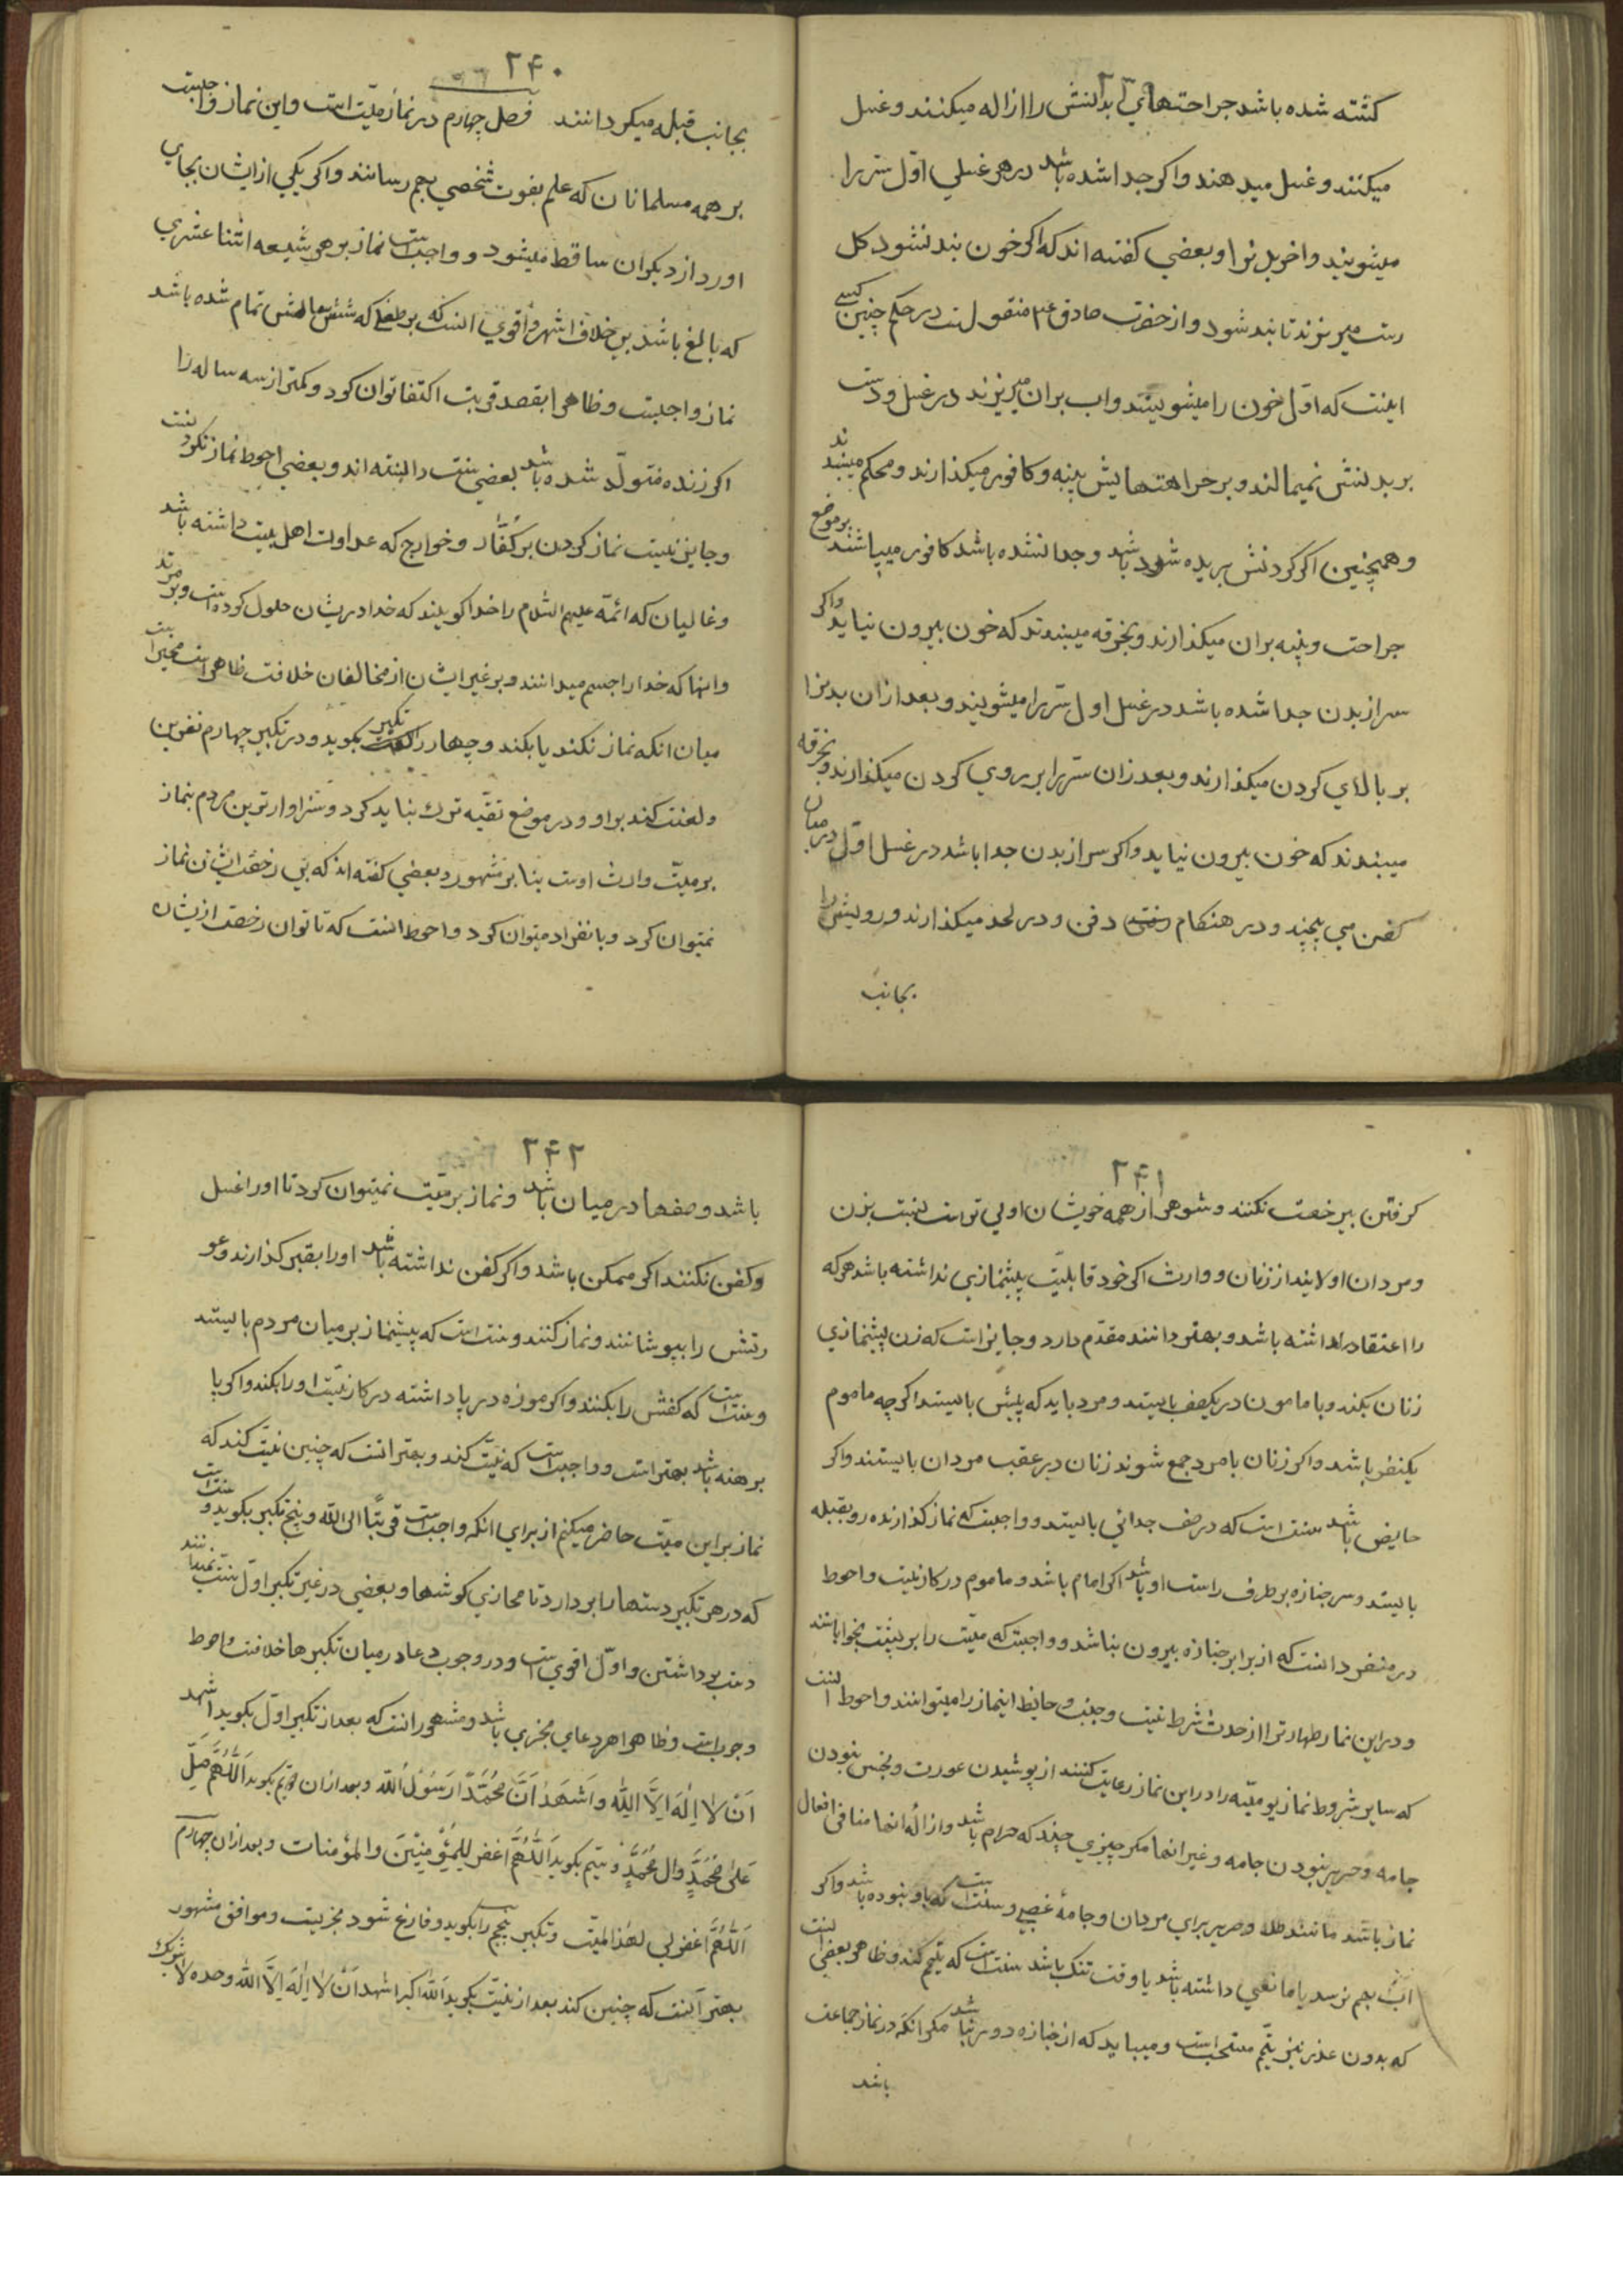 ۲۳۹
کشته شده باشد جراحتهای بدنش را ازاله میکنند و غسل
میکنند و غسل میدهند و اکر جدا شده باشد در هر غسلی اوّل سر را
میشویند و اخر بدنرا و بعضی کفته اند که اکر خون بند نشود کل
میریزند تا بند شود و از حضرت صادق ع م منقولست در حکم چنین کسے
اینست که اوّل خون را میشویند و اب بران میریزند در غسل و دست
بر بدنش نمیمالند و بر جراحتهایش پنبه و کافور میکذارند و محکم میبندند
و همچنین اکر کردنش بریده شده باشد و جدا نشده باشد کافور میپاشند بر موضع
جراحت و پنبه بران میکذارند و بخرقه میبندند که خون بیرون نیاید و اکر
سر از بدن جدا شده باشد در غسل اول سر را میشویند و بعد ازان بدنرا
بر بالای کردن میکذارند و بعد زان سر را بر روی کردن میکذارند و بخرقه
میبندند که خون بیرون نیاید و اکر سر از بدن جدا باشد در غسل اوّل در میان
کفن می پیچند و در هنکام دفن و در لحد میکذارند و رویش را
بجانب
۲۴۰
بجانب قبله میکردانند فصل چهارم در نماز میّت است و این نماز واجبست
بر همه مسلمانان که علم بفوت شخصی بهم رسانند و اکر یکی از ایشان بجای
اورد از دیکران ساقط میشود و واجبست نماز بر هر شیعه اثنا عشری
که بالغ باشد بی خلاف و اشهر و اقوی انست که بر طفلی که شش سالش تمام شده باشد
نماز واجبست و ظاهرا بقصد قربت اکتفا توان کرد و کمتر از سه ساله را
اکر زنده متولّد شده باشد بعضی سنت دانسته اند و بعضی احوط نماز نکردنست
و جایز نیست نماز کردن بر کفّار و خوارج که عداوت اهل بیت داشته باشد
و غالیان که ائمّه علیهم السّلام را خدا کویند که خدا در یشان حلول کرده است و بر مرتد
وانها که خدا را جسم میدانند و بر غیر ایشان از مخالفان خلافست ظاهرا مخیر است
میان انکه نماز نکند یا بکند و چهار تکبیر بکوید و در تکبیر چهارم نفرین
و لعنت کند بر او و در موضع تقیّه ترک نباید کرد و سزاوارترین مردم بنماز
بر میّت وارث اوست بنا بر مشهور و بعضی کفته اند که بی رخصت ایشان نماز
نمیتوان کرد و بانفراد میتوان کرد و احوط انست که تا توان رخصت از یشان
۲۴۱
کرفتن بی رخصت نکنند و شوهر از همه خویشان اولی تر است نسبت بزن
و مردان اولایند از زنان و وارث اکر خود قابلیّت پیشنمازی نداشته باشد هر که
را اعتقاد داشته باشد و بهتر دانند مقدّم دارد و جایز است که زن پیشنمازی
زنان بکند و با مامون در یکصف بایستد و مرد باید که پیش بایستد اکرچه ماموم
یکنفر باشد و اکر زنان با مرد جمع شوند زنان در عقب مردان بایستند و اکر
حایض باشد سنت است که در صف جدائی بایستد و واجبست که نماز کذارنده رو بقبله
بایستد و سر جنازه بر طرف راست او باشد اکر امام باشد و ماموم در کار نیست و احوط
در منفرد انست که از برابر جنازه بیرون نباشد و واجبست که میّت را بر پشت بخوابانند
و در این نماز طهارت از حدث شرط نیست و جنب و حایض اینماز را میتوانند و احوط انست
که سایر شروط نماز یومیّه را در این نماز رعایت کنند از پوشیدن عورت و نجس نبودن
جامه و حریر نبودن جامه و غیر انها مکر چیزی چند که حرام باشد و از اله انها منافی افعال
نماز باشد مانند طلا و حریر برای مردان و جامهٔ غصبی و سنت است که با وضو بوده باشد و اکر
اب بهم نرسد یا مانعی داشته باشد یا وقت تنک باشد سنت است که تیمّم کند و ظاهر بعضی انست
که بدون عذر نیز تیمّم مستحب است و میباید که از جنازه دور نباشد مکر انکه در نماز جماعت
باشد
۲۴۲
باشد و صفها در میان باشد و نماز بر میّت نمیتوان کرد تا او را غسل
و کفن نکنند اکر ممکن باشد و اکر کفن نداشته باشد او را بقبر کذارند و عو
رتش را بپوشانند و نماز کنند و سنت است که پیشنماز بر میان مردم بایستد
و سنت است که کفش را بکند و اکر موزه در پا داشته در کار نیست او را بکند و اکر پا
برهنه باشد بهتر است و واجبست که نیّت کند و بهتر انست که چنین نیّت کند که
نماز بر این میّت حاضر میکنم از برای انکه واجبست قربتًا الی اللّه و پنج تکبیر بکوید و سنت است
که در هر تکبیر دستها را بردارد تا محاذی کوشها و بعضی در غیر تکبیر اوّل سنت نمیدانند
دست برداشتن و اوّل اقوی است و در وجوب دعا در میان تکبیرها خلافست و احوط
وجوبست و ظاهرا هر دعای مجزی باشد و مشهور انست که بعد از تکبیر اوّل بکوید اشهد
اَنْ لا اِلٰهَ اِلَّا اللّٰه وَ اَشْهَدُ اَنَّ مُحَمَّدًا رَسُولُ اللّه و بعد از ان دویّم بکوید اَللّٰهُمَّ صَلِّ
عَلٰی مُحَمَّدٍ وَال مُحَمَّدٍ و سیّم بکوید اَللّٰهُمَّ اغْفِر لِلْمُؤْمِنِیْنَ وَالمؤمنات و بعد از ان چهارم
اَللّٰهُمَّ اغْفِر لی لِهذَا المیّت و تکبیر پنجم را بکوید و فارغ شود مجزیست و موافق مشهور
بهتر آنست که چنین کند بعد از نیّت بکوید اَللّه اکبر اشهد اَنْ لا اِلٰهَ اِلَّا اللّه وحده لا شریک